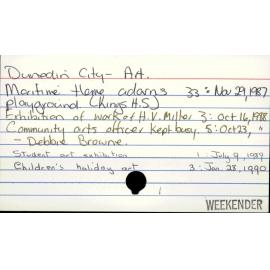 Dunedin City - Art.
Maritime theme adorns 33 : Nov 29, 1987
playground (Kings H.S)
Exhibition of work of H.V. Miller 3: Oct 16, 1988
Community arts officer kept busy. 5: Oct 23, "
- Debbie Browne.
Student art exhibition 1 : July 9, 1989
Children's holiday art 3 : Jan. 28, 1990
WEEKENDER